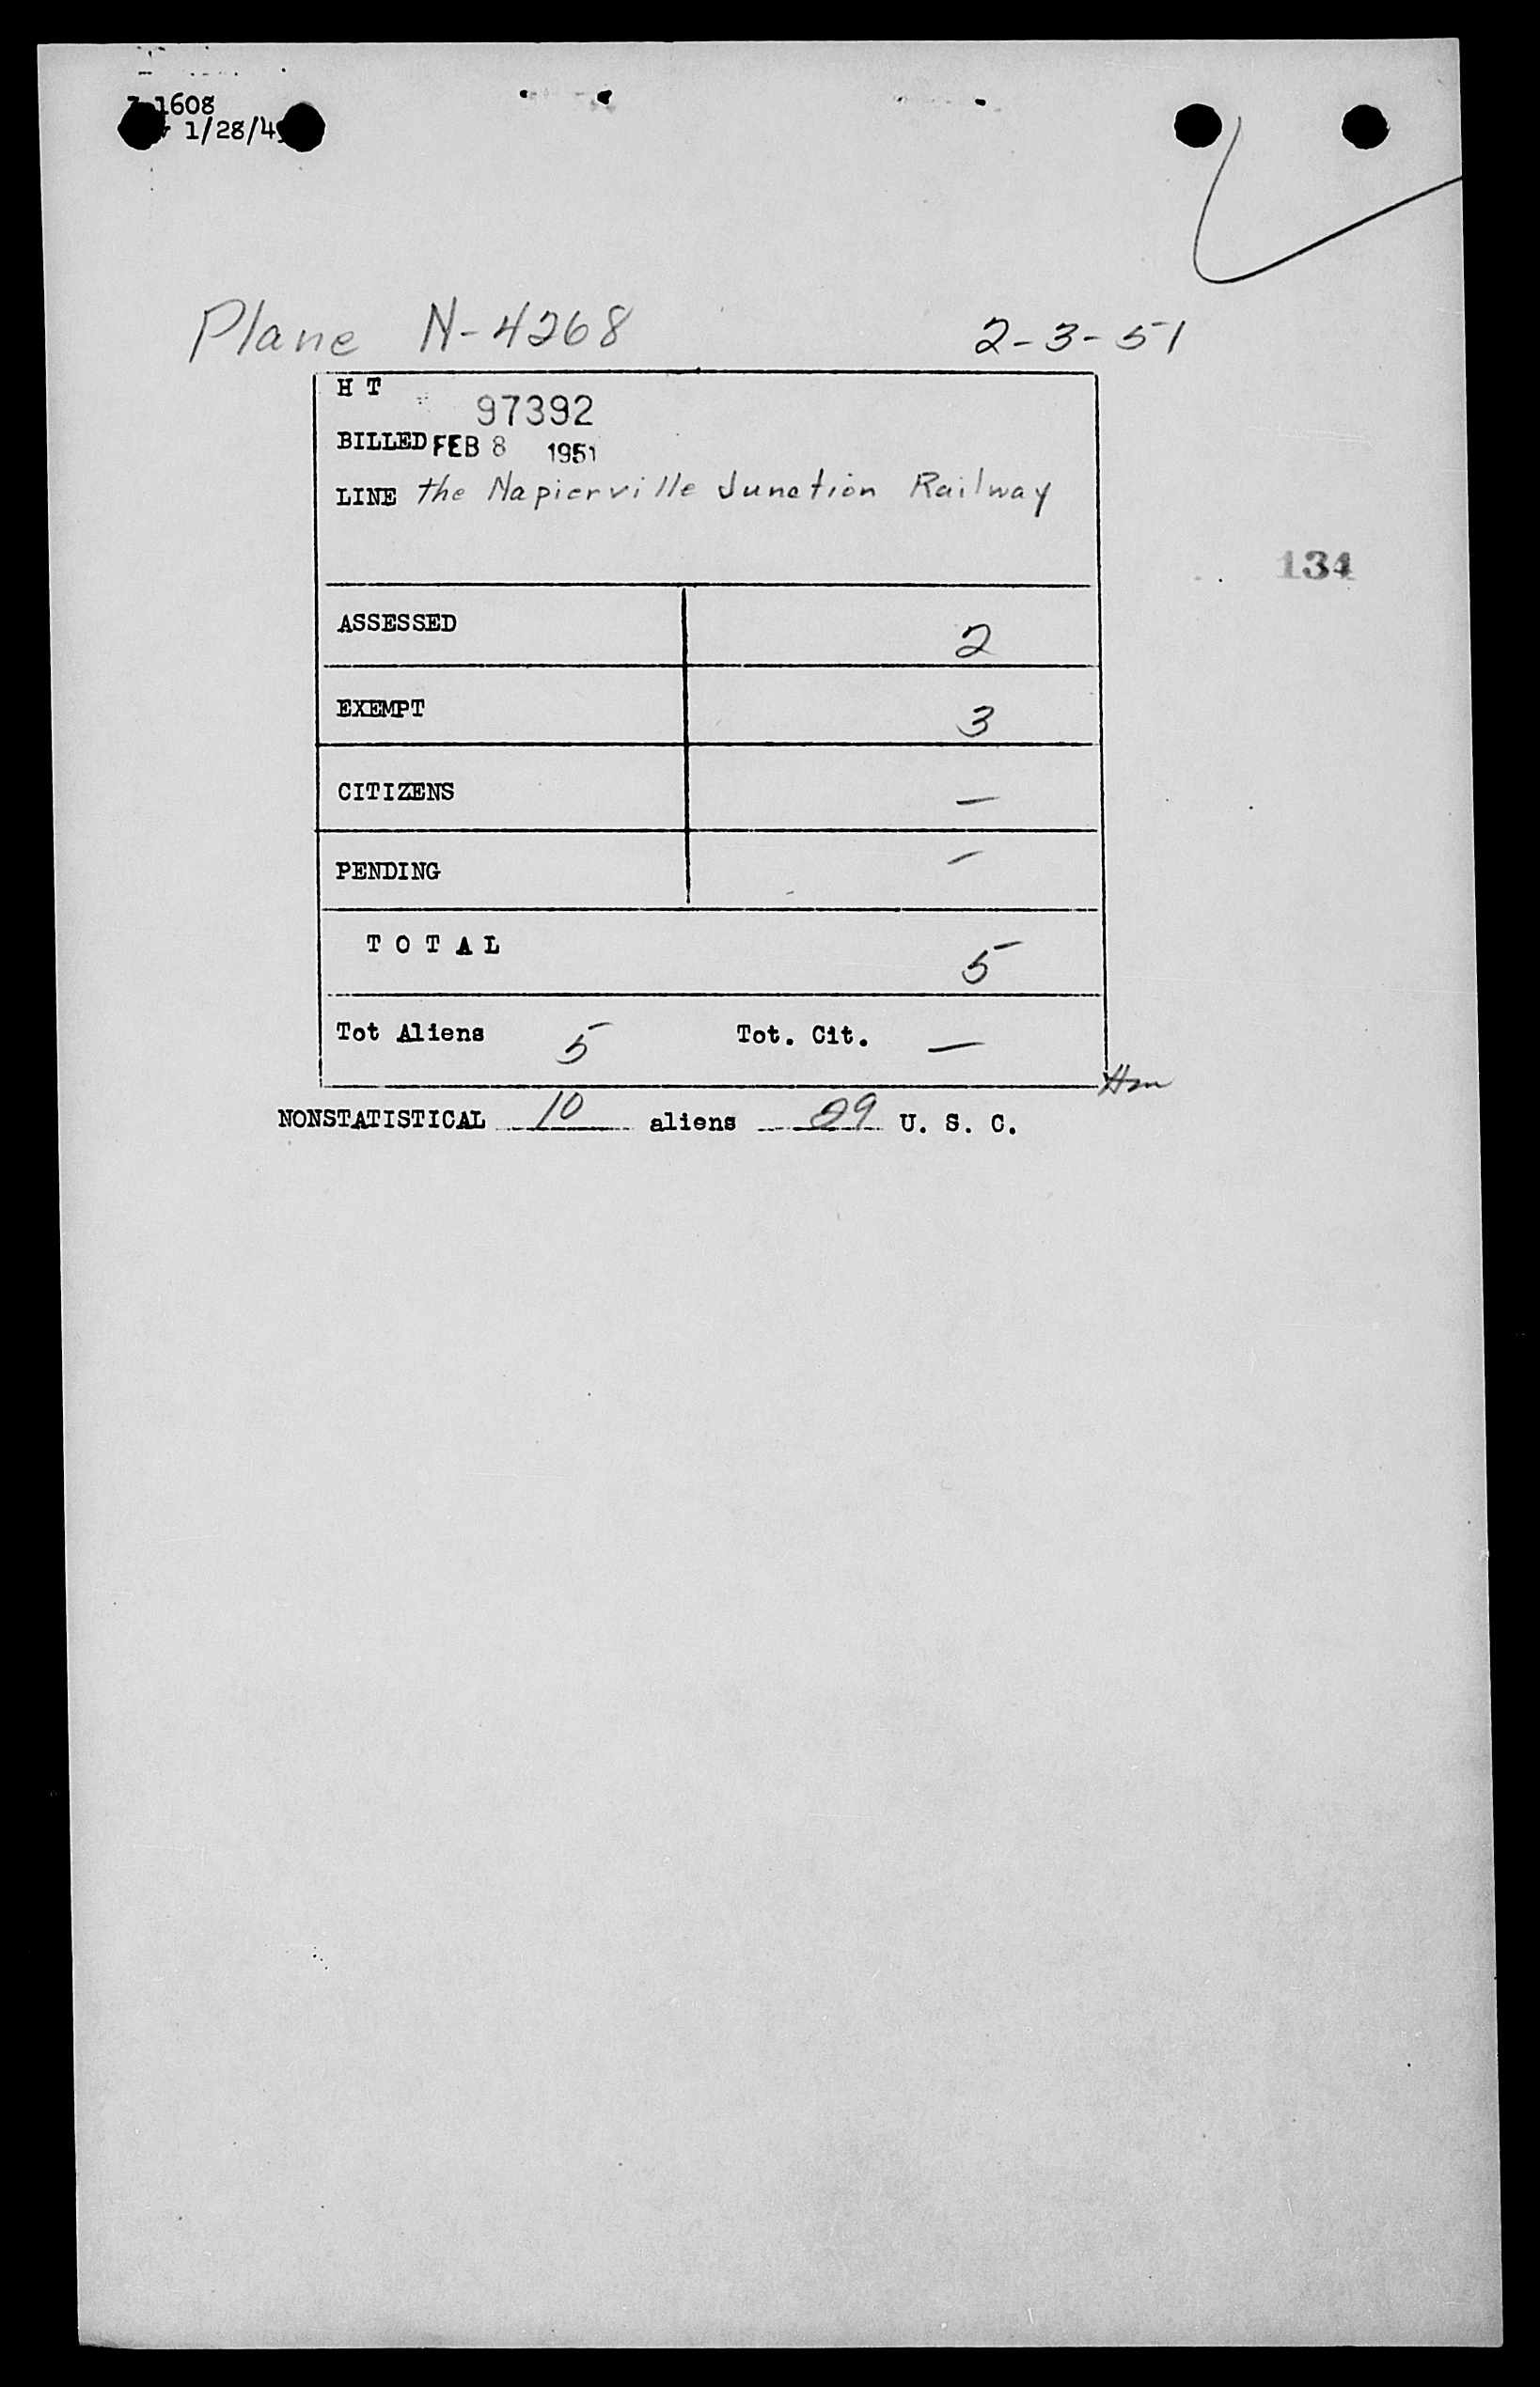 1608
1/28/4
Plane N-4268 2-3-51
H T 97392
BILLED FEB 8 1951
LINE the Napierville Junction Railway
134
ASSESSED 2
EXEMPT 3
CITIZENS —
PENDING —
TOTAL 5
Tot Aliens 5 Tot. Cit. —
NONSTATISTICAL 10 aliens 29 U. S. C.